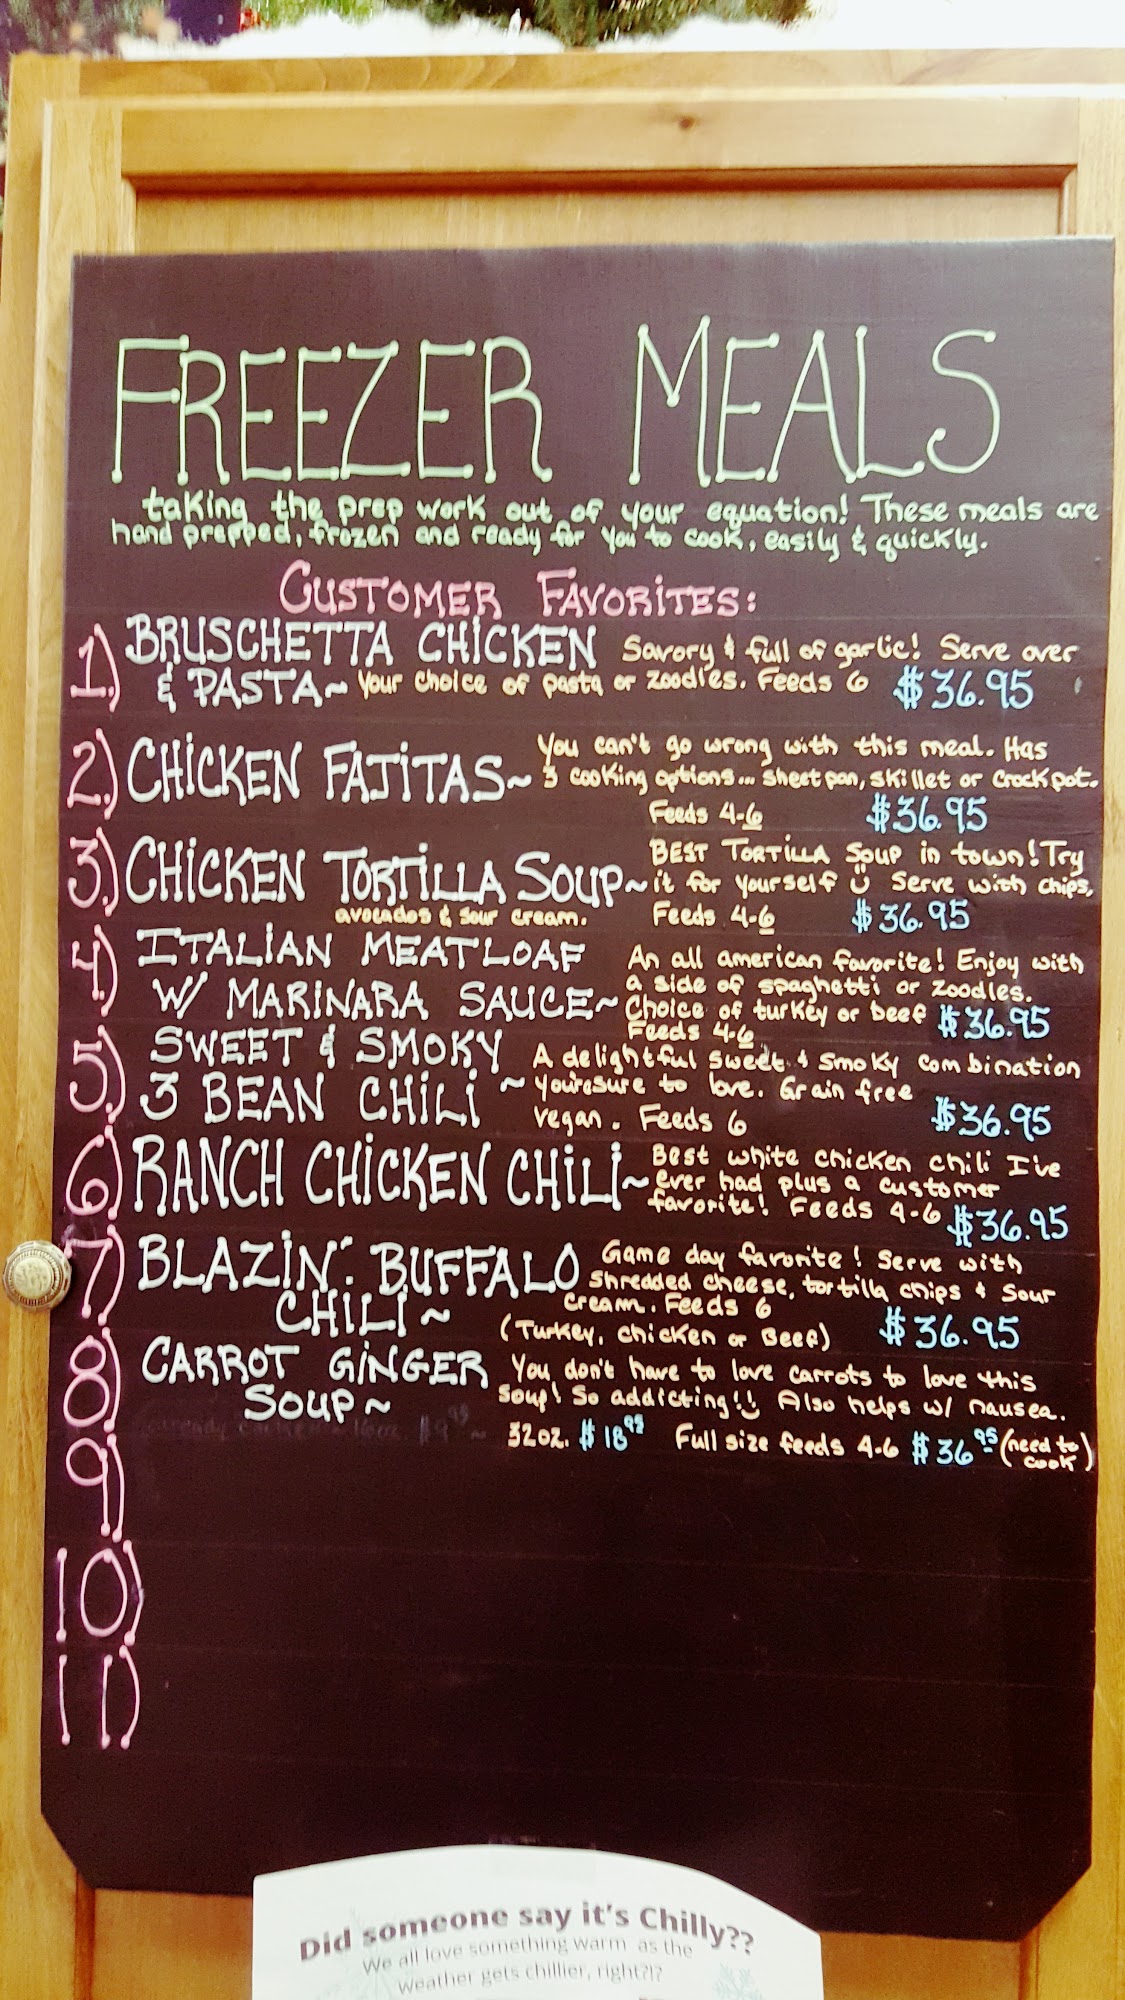 FREEZER MEALS
taking the prep work out of your equation! These meals are
hand prepped, frozen and ready for you to cook, easily & quickly.
CUSTOMER FAVORITES:
1.) BRUSCHETTA CHICKEN Savory & full of garlic! Serve over
& PASTA~ your choice of pasta or zoodles. Feeds 6 $36.95
2.) CHICKEN FAJITAS~ You can't go wrong with this meal. Has
3 cooking options... sheet pan, skillet or crockpot.
Feeds 4-6 $36.95
3.) CHICKEN TORTILLA SOUP~ BEST TORTILLA SOUP in town! Try
it for yourself Serve with chips,
avocados & sour cream. Feeds 4-6 $36.95
4.) ITALIAN MEATLOAF An all american favorite! Enjoy with
a side of spaghetti or zoodles.
W/ MARINARA SAUCE~ Choice of turkey or beef $36.95
Feeds 4-6
5.) SWEET & SMOKY A delightful sweet & smoky combination
3 BEAN CHILI ~ you're sure to love. Grain free
vegan. Feeds 6 $36.95
6.) RANCH CHICKEN CHILI~ Best white chicken chili I've
ever had plus a customer
favorite! Feeds 4-6 $36.95
7.) BLAZIN' BUFFALO Game day favorite! Serve with
shredded cheese, tortilla chips & sour
CHILI~ cream. Feeds 6
(Turkey, chicken or Beef) $36.95
8.) CARROT GINGER You don't have to love carrots to love this
SOUP~ soup! So addicting!! Also helps w/ nausea.
32oz. $18.95 Full size feeds 4-6 $36.95 (need to
cook)
9.)
10)
11)
Did someone say it's Chilly??
We all love something warm as the
weather gets chillier, right?!?